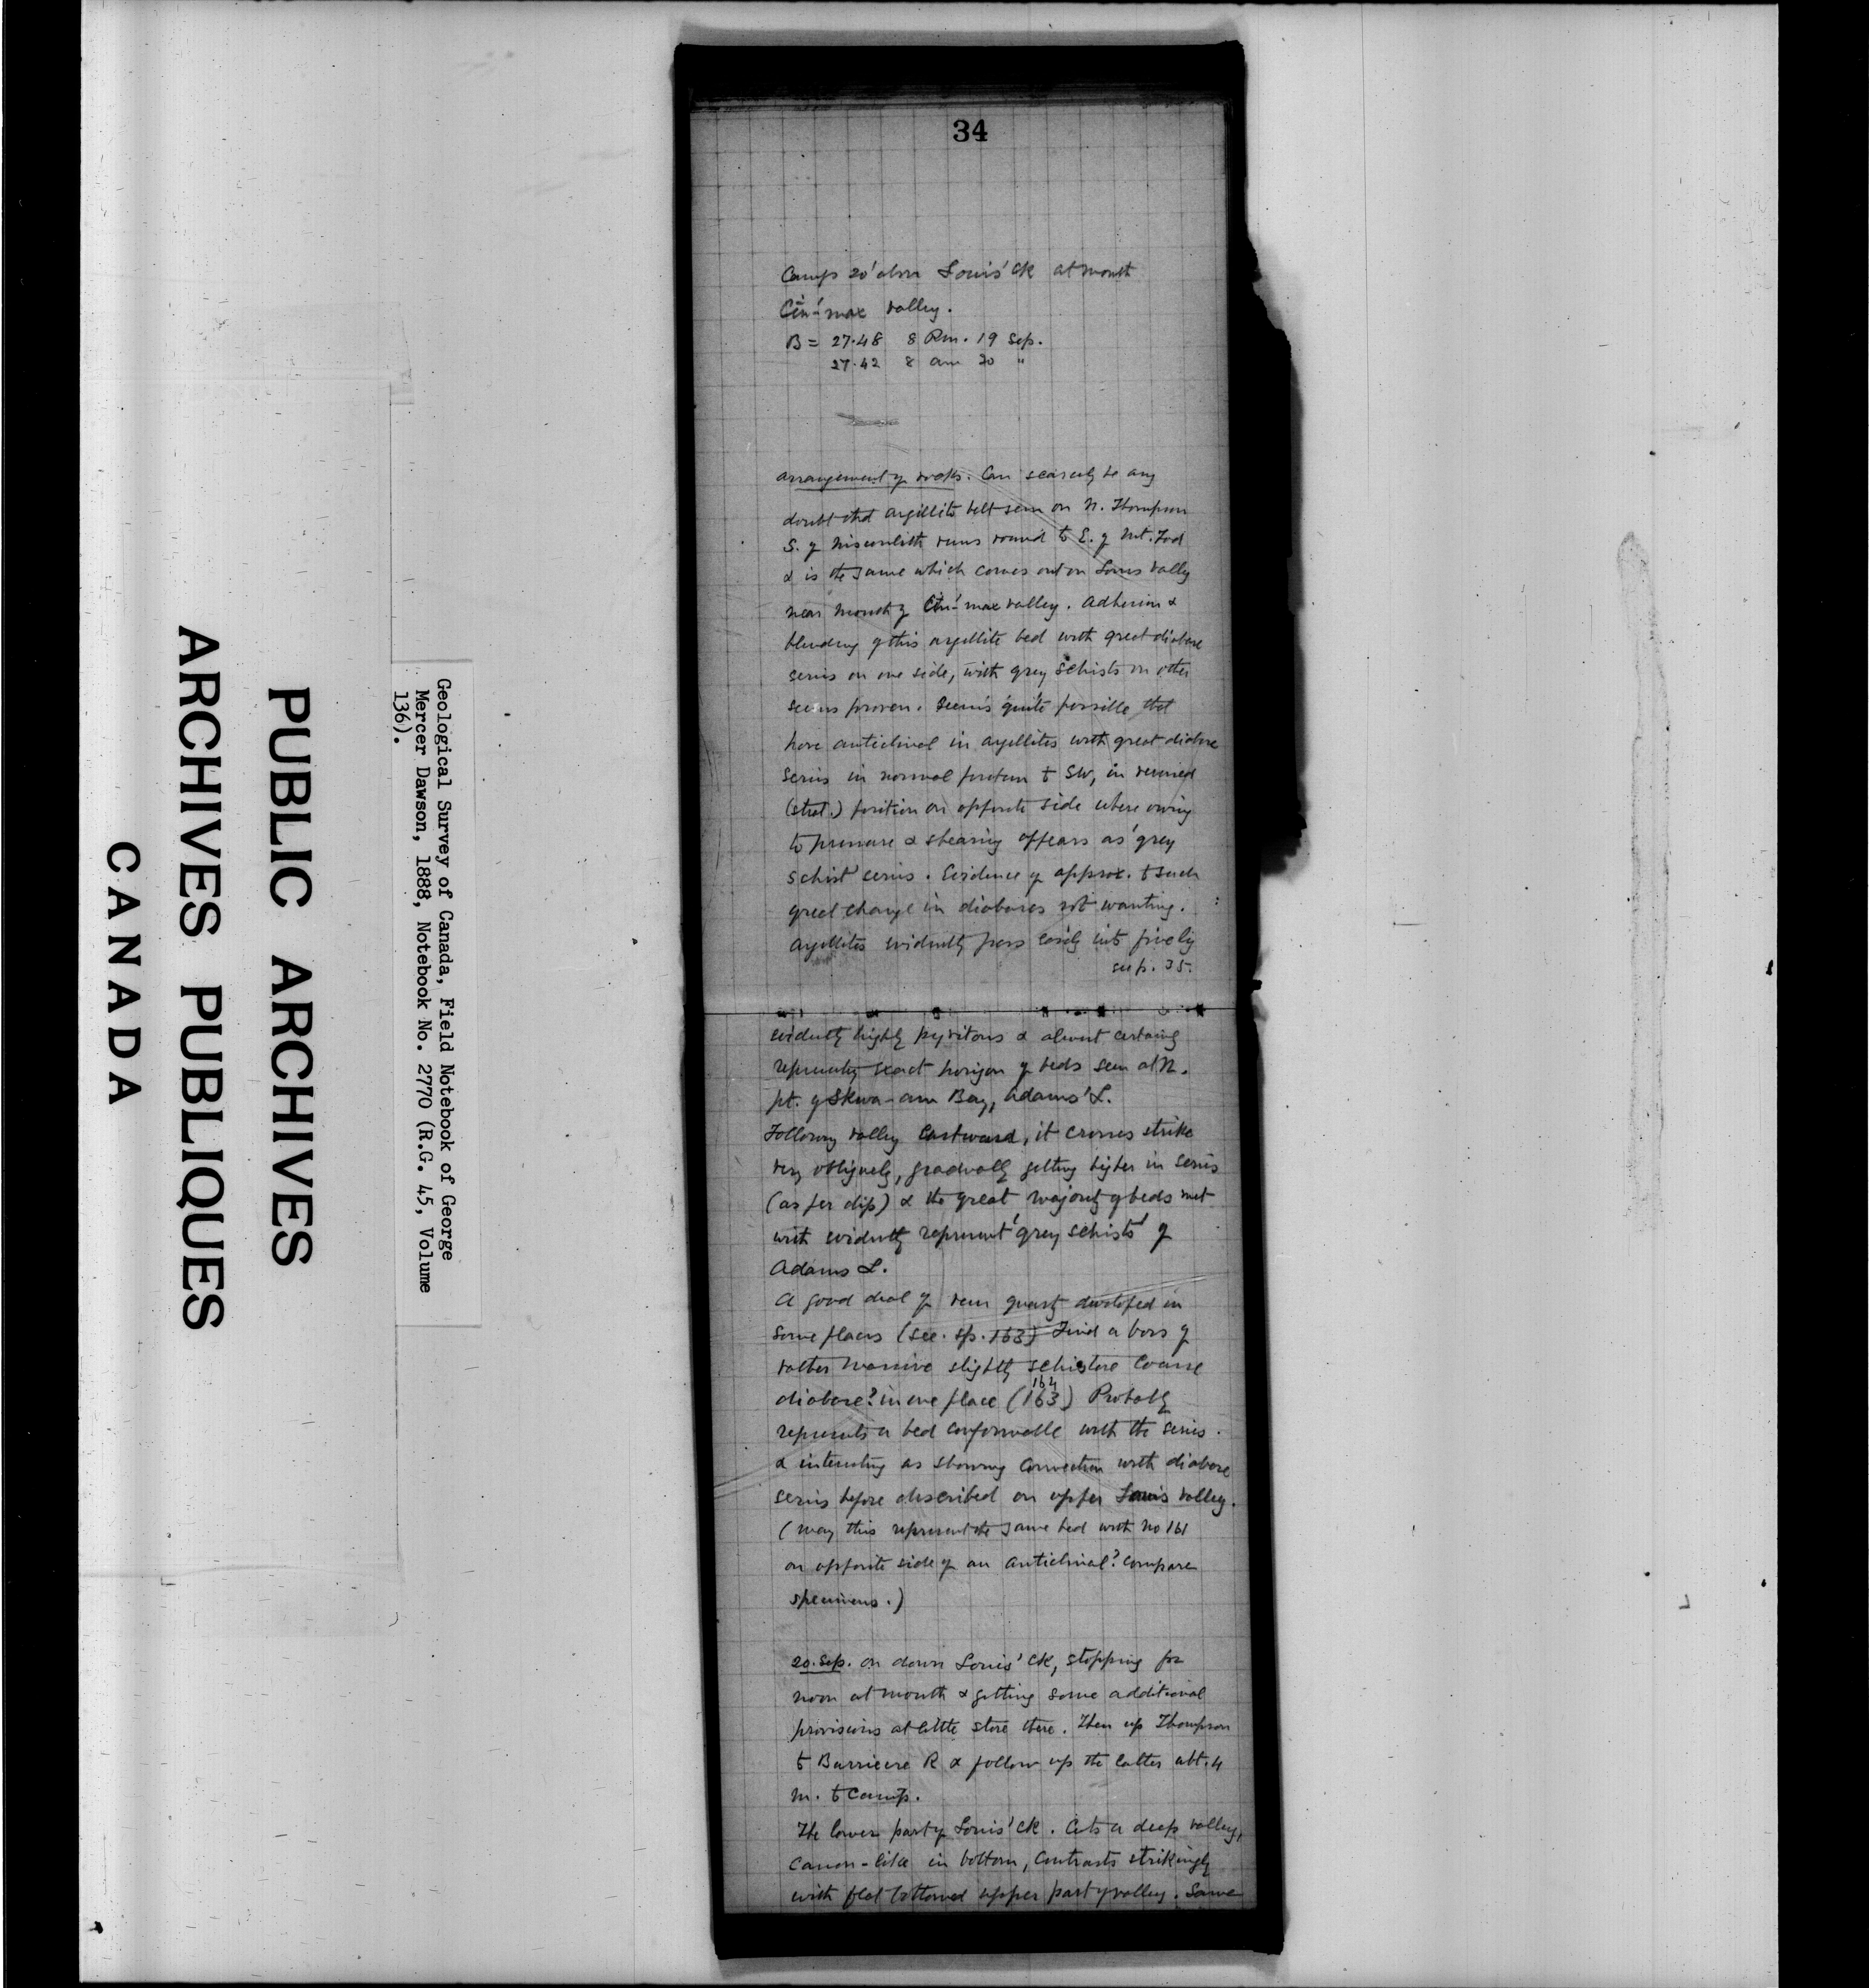 34
Camp 20' above Louis' Ck at mouth
Cin-'max valley.
B = 27.48 8 Pm. 19 Sep.
27.42 8 am 20 "
Arrangement of rocks. Can scarcely be any
doubt that argillite belt seen on N. Thompson
S. of Nisconlith runs round to E. of Mt. Tod
& is the same which comes out on Louis valley
near mouth of Cin-'max valley. Adhesion &
blending of this argillite bed with great diabase
series on one side, with grey schists on other
seems proven. Seems quite possible that
have anticlinal in argillites with great diabase
series in normal position to SW, in
(strat.) position on opposite side where owing
to pressure & shearing appears as 'grey
schist' series. Evidence of approx. to such
great change in diabases not wanting.
Argillites evidently pass easily into finely
see p. 35.
evidently highly pyritous & almost certainly
represents exact horizon of beds seen at N.
pt. of Skwa-am Bay, Adams' L.
Following valley Eastward, it crosses strike
very obliquely, gradually getting higher in series
(as per dip) & the great majority of beds met
with evidently represent 'grey schists' of
Adams L.
A good deal of vein quartz developed in
some places (see. sp. 163) Find a boss of
rather massive slightly schistose coarse
diabase? in one place (163) 164 Probably
represents a bed conformable with the series.
& interesting as showing connection with diabase
series before described on upper Louis valley.
(May this represent the same bed with No 161
on opposite side of an anticlinal? Compare
specimens.)
20. Sep. On down Louis' Ck, stopping for
noon at mouth & getting some additional
provisions at little store there. Then up Thompson
to Barriere R & follow up the latter abt. 4
m. to Camp.
The lower part of Louis' Ck. Cuts a deep valley,
canon-like in bottom, contrasts strikingly
with flat bottomed upper part of valley. Same
Geological Survey of Canada, Field Notebook of George
Mercer Dawson, 1888, Notebook No. 2770 (R.G. 45, Volume
136).
PUBLIC ARCHIVES
ARCHIVES PUBLIQUES
CANADA